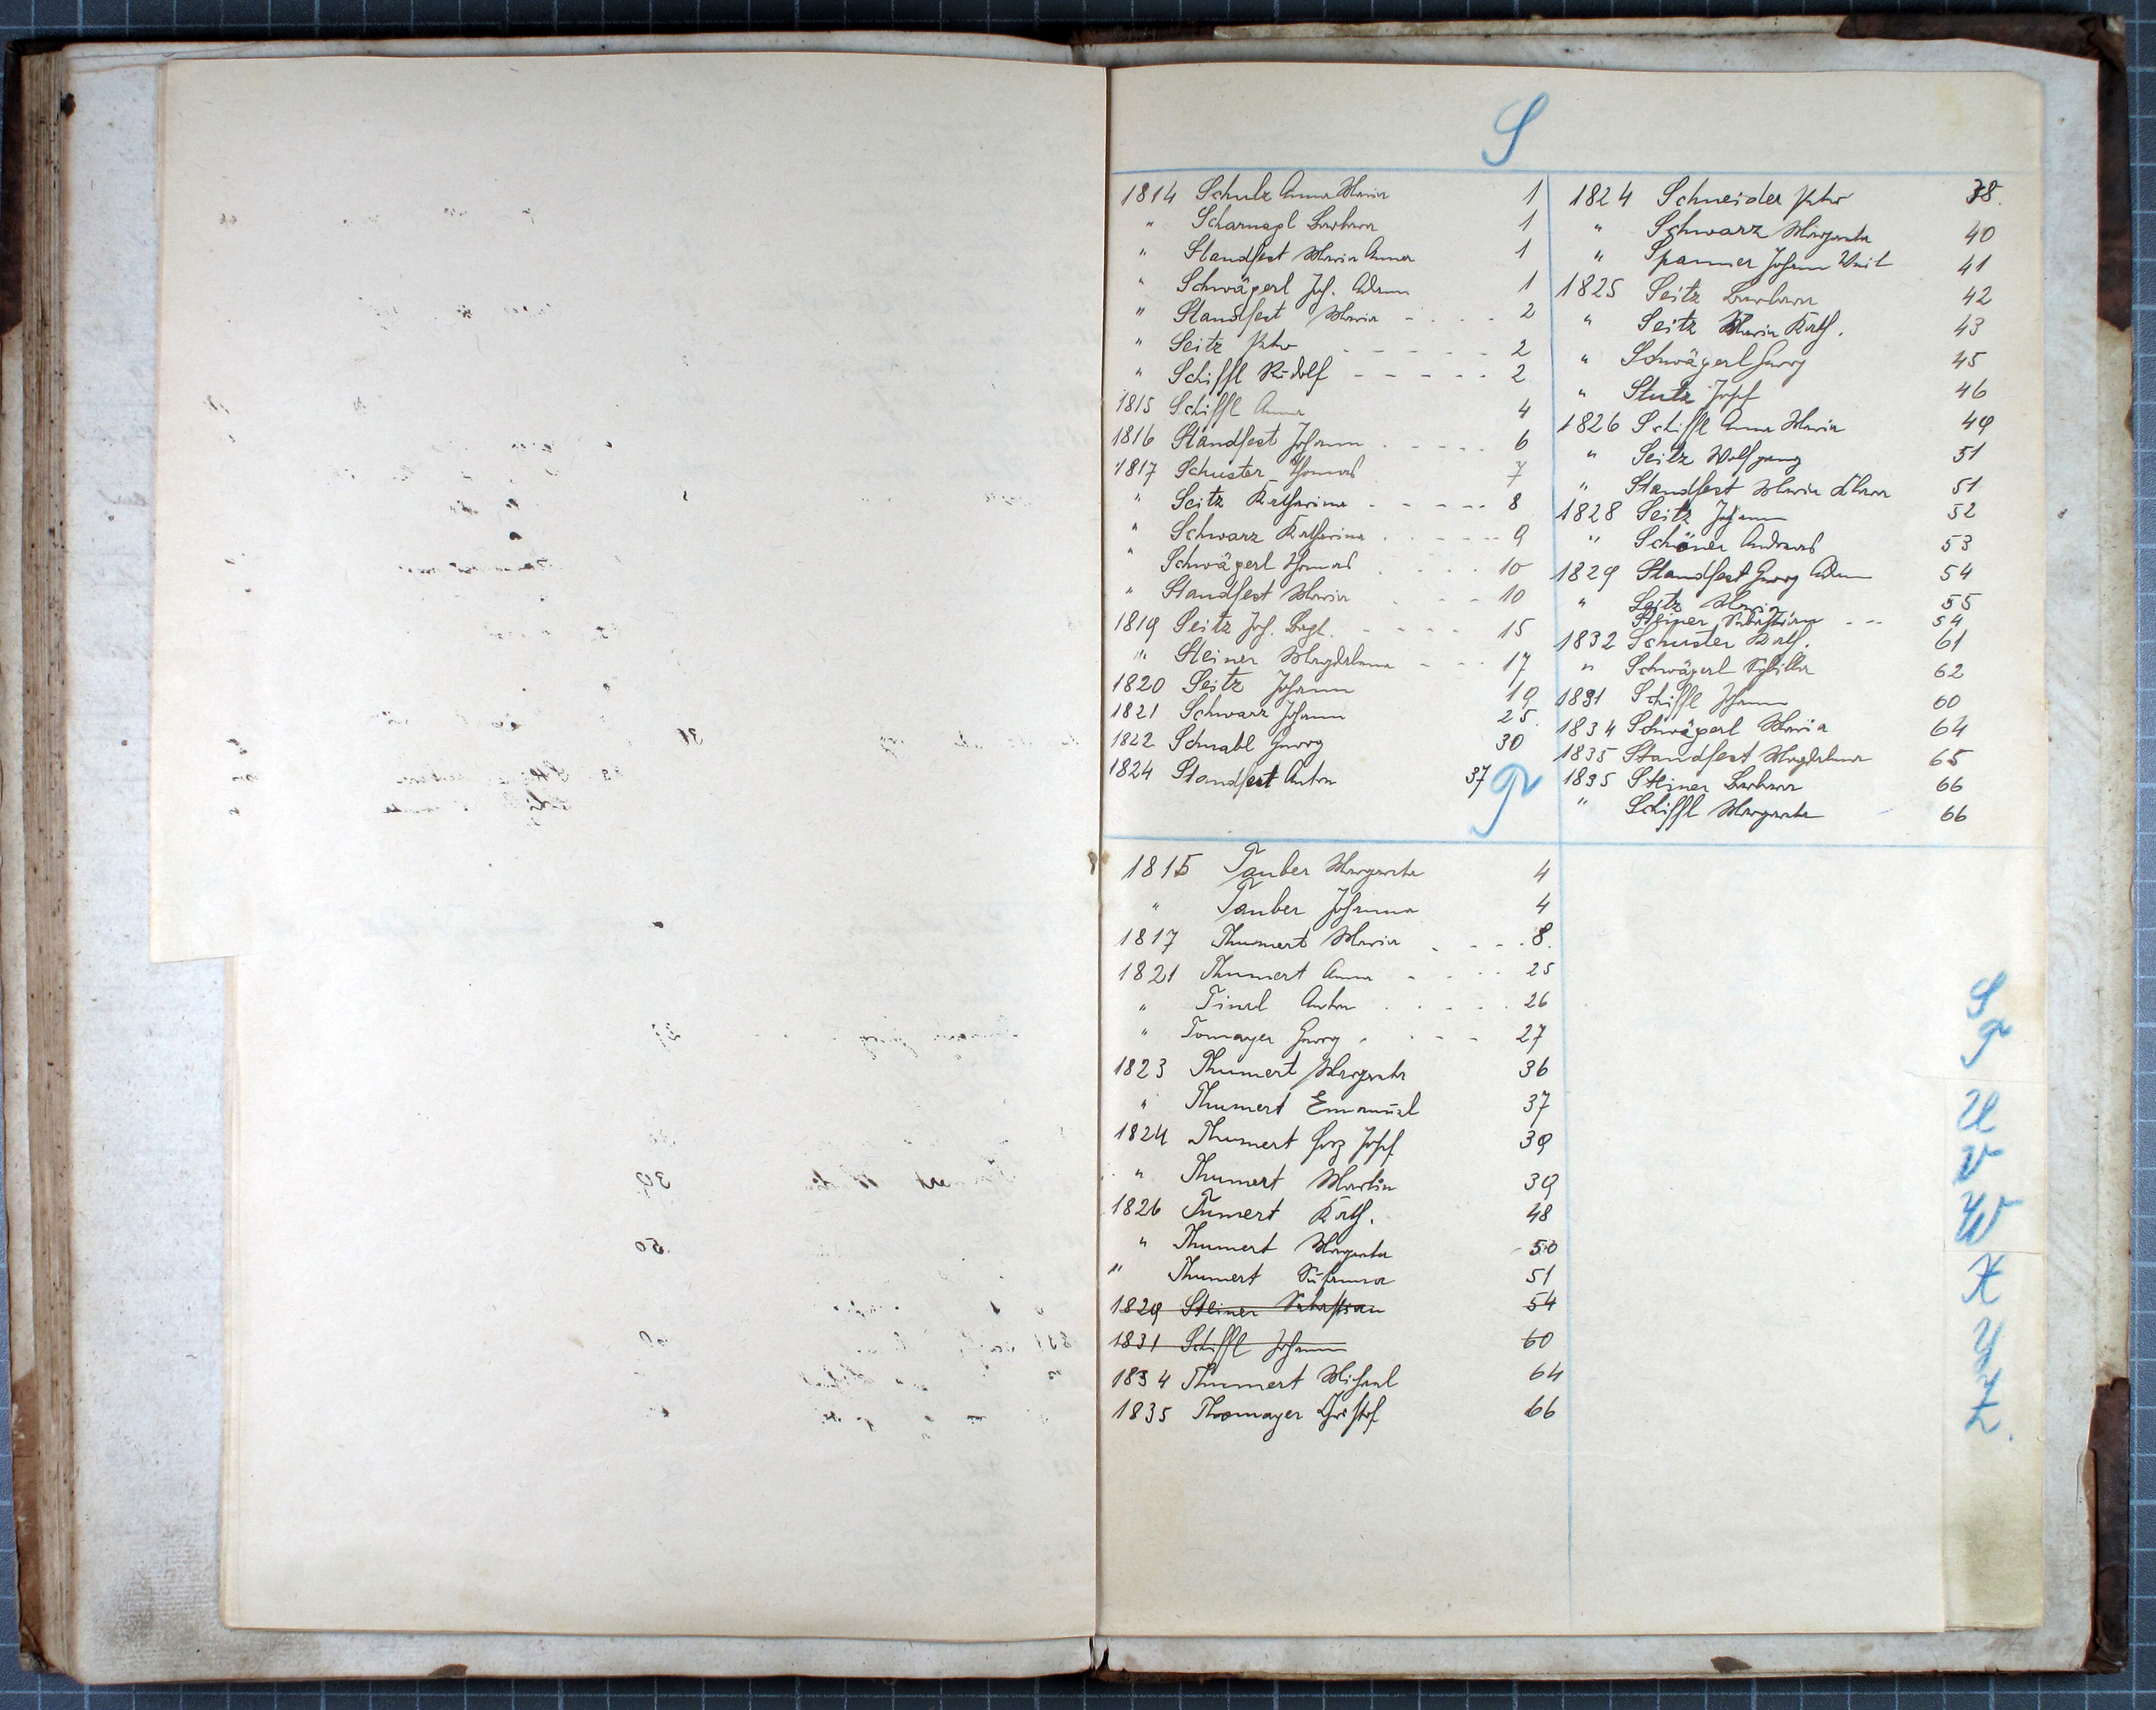 S
1814 Schulz Anna Maria 1
" Scharnagl Barbara 1
" Standfest Maria Anna 1
" Schwägerl Joh. Adam 1
" Standfest Maria - - - - 2
" Seitz Peter - - - - - 2
" Schiffl Rudolf - - - - - 2
1815 Schiffl Anna 4
1816 Standfest Johann - - - - 6
1817 Schuster Thomas 7
" Seitz Katharina - - - - - 8
" Schwarz Katharina - - - - - 9
" Schwägerl Thomas - - - - 10
" Standfest Maria - - - 10
1819 Seitz Joh. Bapt. - - - - - 15
" Steiner Magdalena - - - 17
1820 Seitz Johann 19
1821 Schwarz Johann 25.
1822 Schnabl Georg 30
1824 Standfest Anton 37
1824 Schneider Peter 38.
" Schwarz Margareta 40
" Spanner Johann Veit 41
1825 Seitz Barbara 42
" Seitz Maria Kath. 43
" Schwägerl Georg 45
" Stutz Josef 46
1826 Schiffl Anna Maria 49
" Seitz Wolfgang 51
" Standfest Maria Klara 51
1828 Seitz Johann 52
" Schöner Andreas 53
1829 Standfest Georg Adam 54
" Seitz Maria 55
Steiner Sebastian - - 54
1832 Schuster Kath. 61
" Schwägerl Sybilla 62
1831 Schiffl Johann 60
1834 Schwägerl Maria 64
1835 Standfest Magdalena 65
1835 Steiner Barbara 66
" Schiffl Margareta 66
T
1815 Tauber Margareta 4
" Tauber Johanna 4
1817 Thumert Maria - - - - 8.
1821 Thumert Anna - - - - 25
" Tinzl Anton - - - - - 26
" Tomayer Georg - - - - 27
1823 Thumert Margareta 36
" Thumert Emanuel 37
1824 Thumert Josef 39
" Thumert Martin 39
1826 Tumert Kath. 48
" Thumert Margareta 50
" Thumert Susanna 51
1829 Steiner Sebastian 54
1831 Schiffl Johann 60
1834 Thumert Michael 64
1835 Thomayer Christof 66
S
T
U
V
W
X
Y
Z.